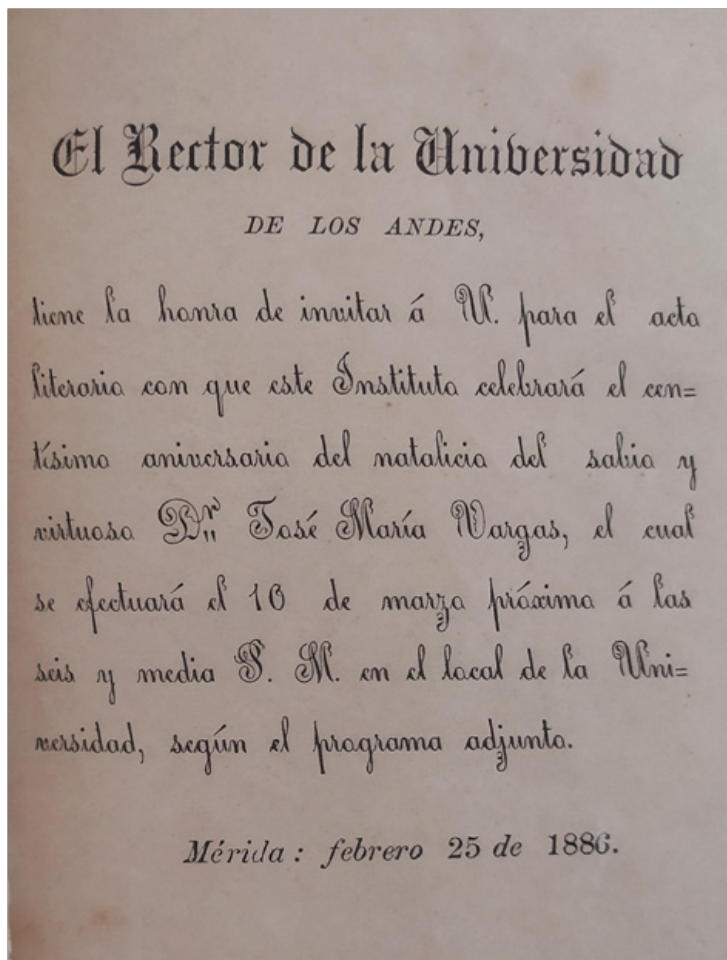 El Rector de la Universidad
DE LOS ANDES,
tiene la honra de invitar á U. para el acto
literario con que este Instituto celebrará el cen=
tísimo aniversario del natalicio del sabio y
virtuoso Dr. José María Vargas, el cual
se efectuará el 10 de marzo próximo á las
seis y media P. M. en el local de la Uni=
versidad, según el programa adjunto.
Mérida: febrero 25 de 1886.